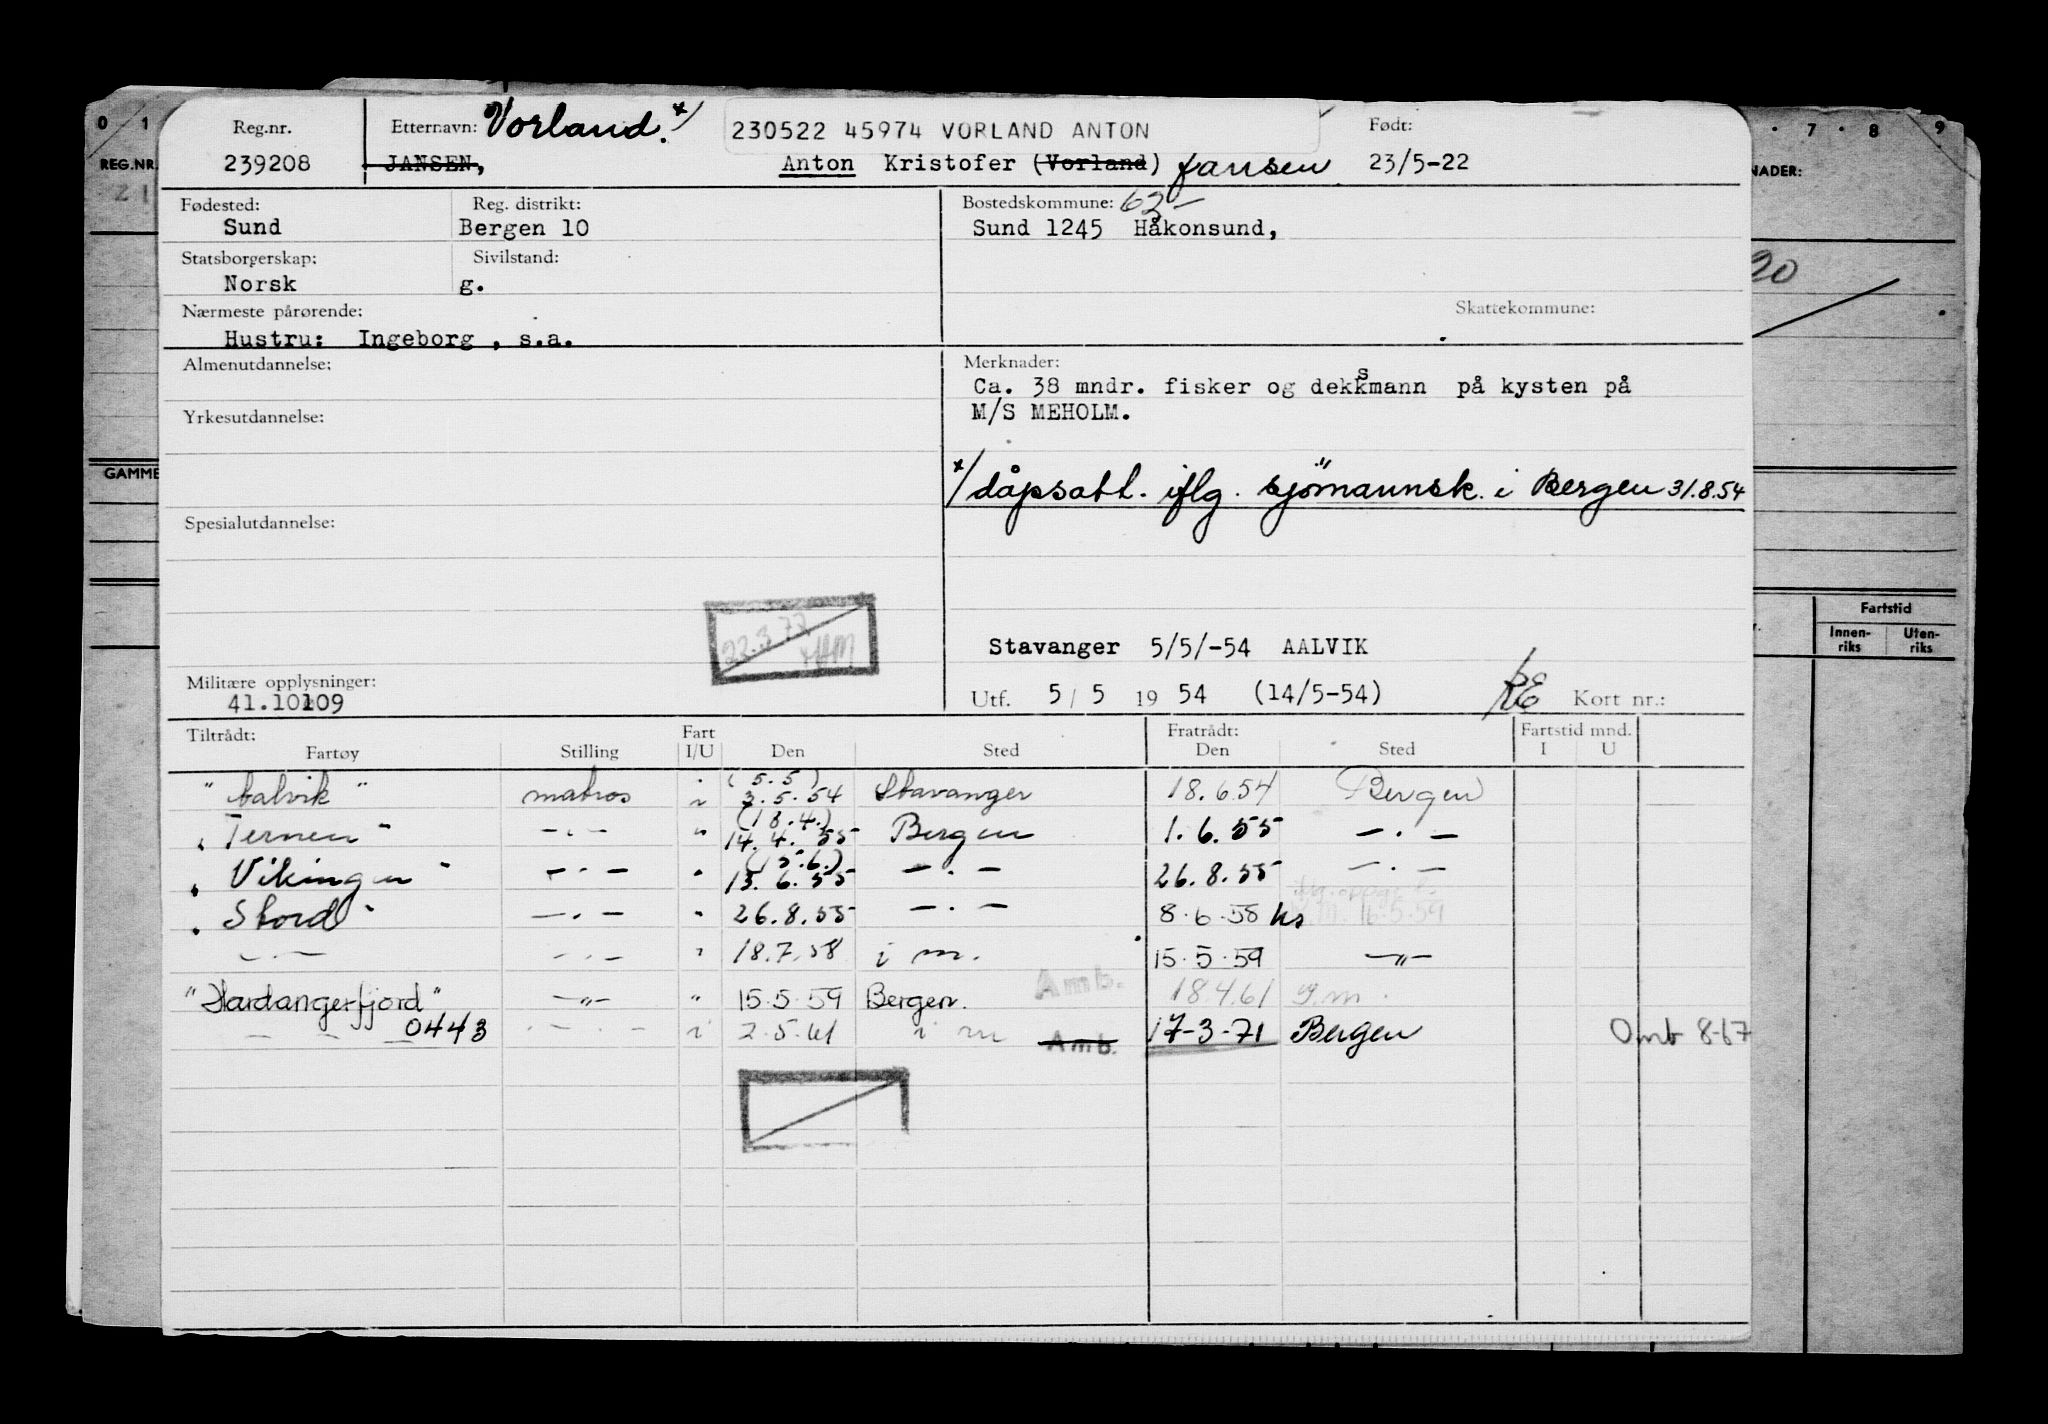 0 1
Reg.nr. Etternavn: Vorland. x/ 230522 45974 VORLAND ANTON Født: 7 8 9
REG.NR. 239208 JANSEN, Anton Kristofer (Vorland) Jansen 23/5-22 NADER:
Fødested: Reg. distrikt: Bostedskommune: 63-
Sund Bergen 10 Sund 1245 Håkonsund,
Statsborgerskap: Sivilstand:
Norsk g.
Nærmeste pårørende: Skattekommune:
Hustru: Ingeborg , s.a.
Almenutdannelse: Merknader:
Ca. 38 mndr. fisker og deksmann på kysten på
Yrkesutdannelse: M/S MEHOLM.
GAMME
x/ dåpsatt. iflg. sjömannsk. i Bergen 31.8.54
Spesialutdannelse:
22.3.77
Fartstid
Innen-riks Uten-riks
Stavanger 5/5/-54 AALVIK
Militære opplysninger:
41.10109 Utf. 5/5 1954 (14/5-54) Kort nr.:
Tiltrådt: Fart Fratrådt: Fartstid mnd.
Fartøy Stilling I/U Den Sted Den Sted I U
(5.5)
"Aalvik" matros i 3.5.54 Stavanger 18.6.54 Bergen
(18.4.)
"Ternen" -.- " 14.4.55 Bergen 1.6.55 -.-
(15.6.)
"Vikingen" -.- " 13.6.55 -.- 26.8.55 -.-
"Stord" -.- " 26.8.55 -.- 8.6.58 ks 16.5.59
-.- -.- " 18.7.58 i m. 15.5.59 -"-
"Hardangerfjord" -"- " 15.5.59 Bergen. Amb. 18.4.61 I m.
- - - 0443 -.- i 2.5.61 i m Amb. 17-3-71 Bergen Omb 8-67